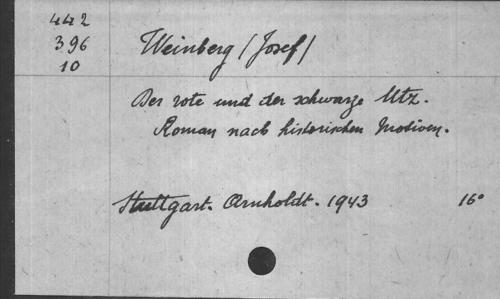 442
396
10
Weinberg (Josef)
Der rote und der schwarze Utz.
Roman nach historischen Motiven.
Stuttgart. Arnholdt. 1943 16°